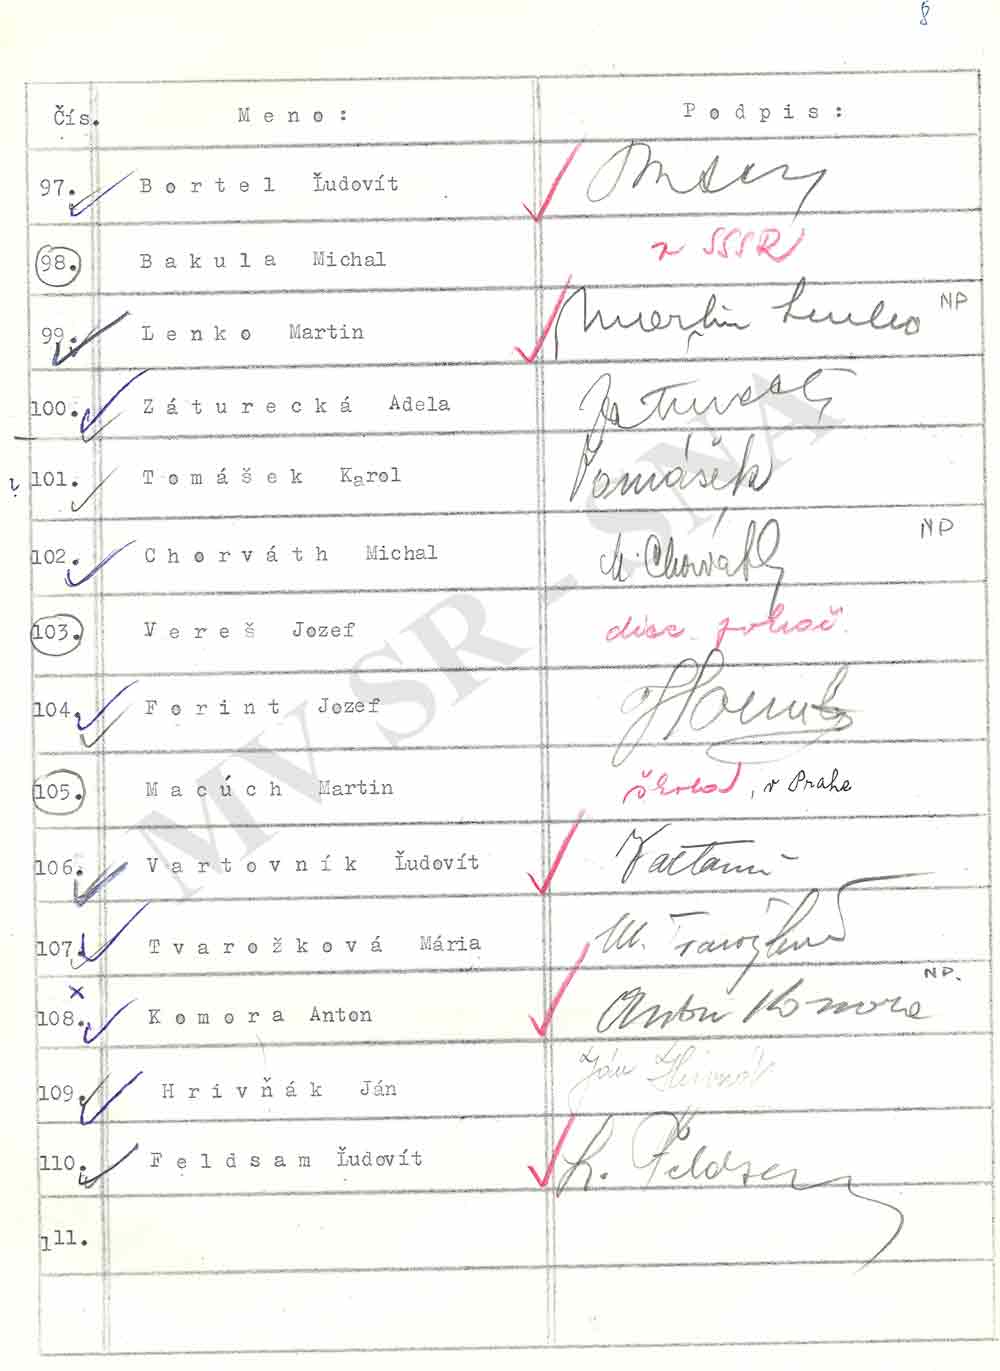 8
Čís. Meno: Podpis:
97. Bortel Ľudovít
98. Bakula Michal z SSSR
99. Lenko Martin Martin Lenko NP
100. Záturecká Adela
101. Tomášek Karol Tomášek
102. Chorváth Michal M. Chorváth NP
103. Vereš Jozef
104. Forint Jozef
105. Macúch Martin , v Prahe
106. Vartovník Ľudovít
107. Tvarožková Mária M. Tvarožková
x
108. Komora Anton Anton Komora NP.
109. Hrivňák Ján Ján Hrivňák
110. Feldsam Ľudovít Ľ. Feldsam
111.
MV SR - SNA